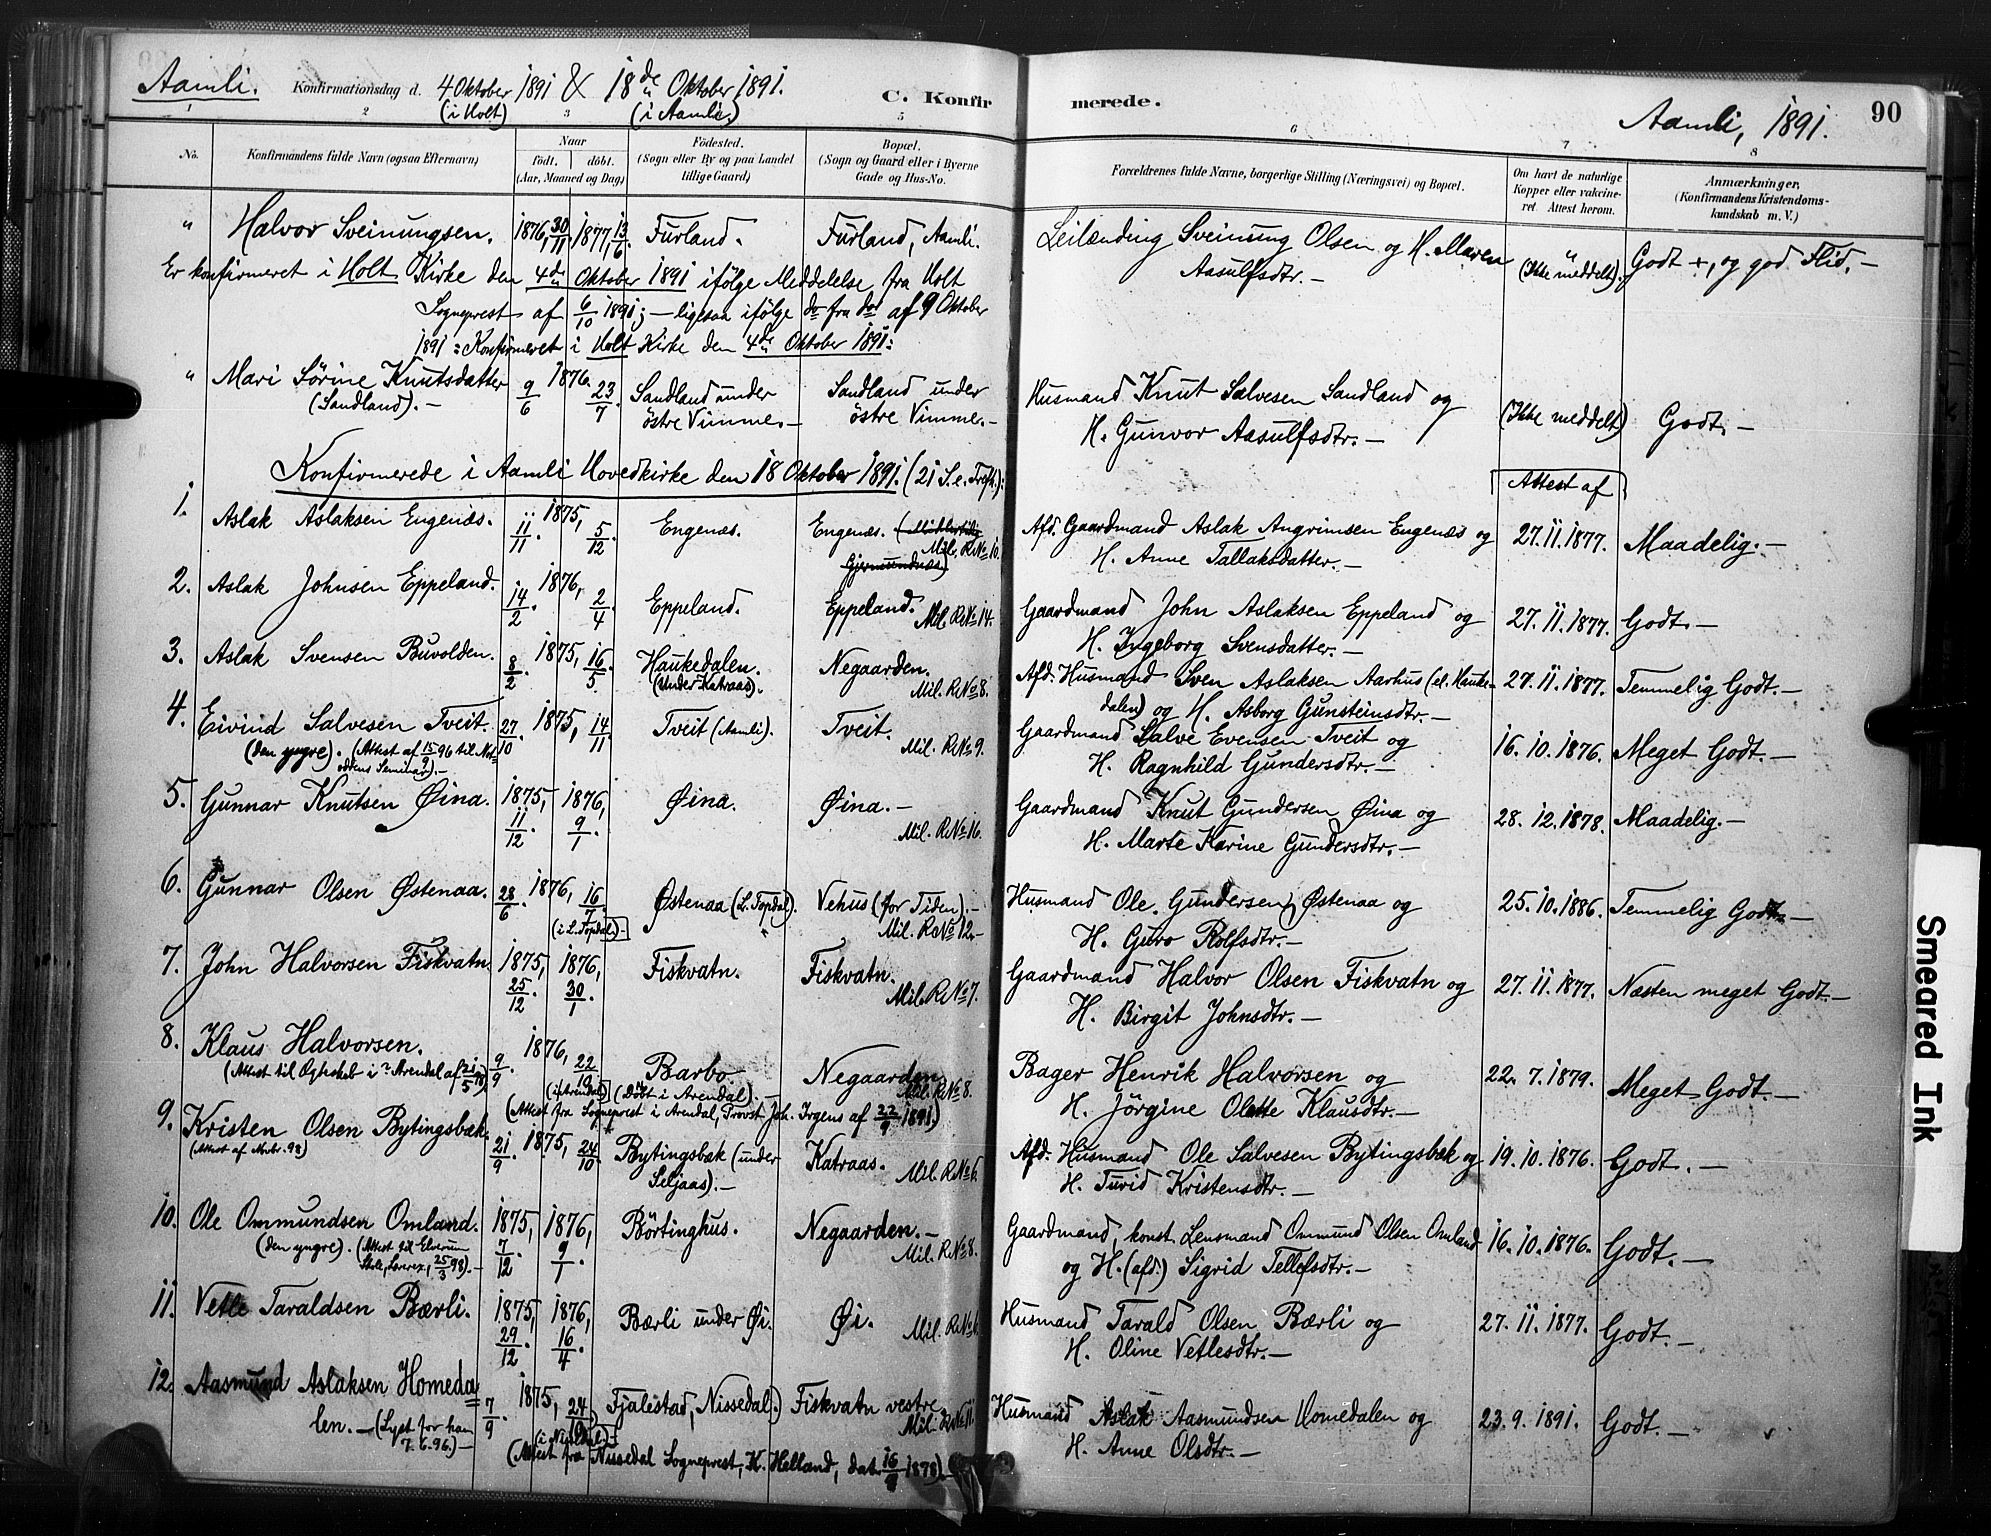 Aamli. Konfirmationsdag d. 4 Oktober 1891 & 18de Oktober 1891.
(i Holt) (i Aamli)
C. Konfirmerede.
Aamli, 1891. 90
1 2 3 5 6 7 8
No. Konfirmandens fulde Navn (ogsaa Efternavn) Naar født. døbt. (Aar, Maaned og Dag) Fødested. (Sogn eller By og paa Landet tillige Gaard) Bopæl. (Sogn og Gaard eller i Byerne Gade og Hus-No. Forældrenes fulde Navne, borgerlige Stilling (Næringsvei) og Bopæl. Om havt de naturlige Kopper eller vakcineret. Attest herom. Anmærkninger, (Konfirmandens Kristendomskundskab m. V.)
" Halvor Sveinungsen. 1876, 30/11 1877, 13/6 Furland. Furland, Aamli. Leilænding Sveinung Olsen og H. Maren Aasulfsdtr. — " (Ikke meddelt). Godt +, og god Flid. —
Er konfirmeret i Holt Kirke den 4de Oktober 1891 ifölge Meddelelse fra Holt
Sogneprest af 6/10 1891; — ligesaa ifölge do fra do af 9 Oktober
1891 : Konfirmeret i Holt Kirke den 4de Oktober 1891:
" Mari Sörine Knutsdatter (Sandland). — 1876. 9/6 23/7. Sandland under östre Vimme. — Sandland under östre Vimme. — Husmand Knut Salvesen Sandland og H. Gunvor Aasulfsdtr. — (Ikke meddelt) Godt. —
Konfirmerede i Aamli Hovedkirke den 18 Oktober 1891. (21 S. e. Trefh.):
Attest af
1. Aslak Aslaksen Engenæs. 1875, 11/11. 5/12. Engenæs. Engenæs. Gjermundnæs) Mil. R. No 10. Afd. Gaardmand Aslak Angrimsen Engenæs og H. Anne Tallaksdatter. — 27.11.1877. Maadelig. —
2. Aslak Johnsen Eppeland. 1876, 14/2. 2/4. Eppeland. Eppeland. Mil. R. No 14. Gaardmand John Aslaksen Eppeland og H. Ingeborg Svensdatter. — 27.11.1877. Godt. —
3. Aslak Svensen Buvolden. 1875, 8/2. 16/5. Haukedalen. (under Katraas). Negaarden. Mil. R. No 8. Afd. Husmand Sven Aslaksen Aarhus (el. Haukedalen) og H. Asborg Gunsteinsdtr. — 27.11.1877. Temmelig Godt. —
4. Eivind Salvesen Tveit. (den yngre). (Attest af 15/9 96 til Notoddens Seminar). — 1875, 27/10. 14/11. Tveit (Aamli). Tveit. Mil. R. No 9. Gaardmand Salve Evensen Tveit og H. Ragnhild Gundersdtr. — 16.10.1876. Meget Godt. —
5. Gunnar Knutsen Øina. 1875, 11/12. 1876, 9/1. Øina. Øina. — Mil. R. No 16. Gaardmand Knut Gundersen Øina og H. Marte Karine Gundersdtr. — 28.12.1878. Maadelig. —
6. Gunnar Olsen Østenaa. 1876, 28/6. 16/7 (i L. Topdal). — Østenaa (L. Topdal). Vehus (for Tiden). — Mil. R. No 12. — Husmand Ole Gundersen Østenaa og H. Guro Rolfsdtr. — 25.10.1886. Temmelig Godt. —
7. John Halvorsen Fiskvatn. 1875, 25/12. 1876, 30/1. Fiskvatn. Fiskvatn. Mil. R. No 7. Gaardmand Halvor Olsen Fiskvatn og H. Birgit Johnsdtr. — 27.11.1877. Næsten meget Godt. —
8. Klaus Halvorsen. (Attest til Ægteskab i Arendal af 21/5) 1876, 9/9. 22/10 (i Arendal) Barbo. (Döbt i Arendal). — Negaarden. Mil. R. No 8. Bager Henrik Halvorsen og H. Jörgine Olette Klausdtr. — 22.7.1879. Meget Godt. —
(Attest fra Sogneprest i Arendal, Provst Joh. Irgens af 22/9 1891.)
9. Kristen Olsen Bytingsbæk. (Attest af Novbr. 98) 1875, 21/9. 24/10. Bytingsbæk (under Seljaas). — Katraas. Mil. R. No 6. Afd. Husmand Ole Salvesen Bytingsbæk og H. Turid Kristensdtr. — 19.10.1876. Godt. —
10. Ole Ommundsen Omland. (den yngre). (Attest til Elverum Skole, 25/3 98). — 1875, 7/12. 1876, 9/1. Börtinghus. Negaarden. — Mil. R. No 8. Gaardmand, konst. Lensmand Ommund Olsen Omland og H. (afd.) Sigrid Tellefsdtr. — 16.10.1876. Godt. —
11. Vetle Taraldsen Bærli. 1875, 29/12. 1876, 16/4. Bærli under Øi. Øi. Mil. R. No 6. Husmand Tarald Olsen Bærli og H. Oline Vetlesdtr. — 27.11.1877. Godt. —
12. Aasmund Aslaksen Homedalen. — (Lyst for ham 7.6.96.) — 1875, 7/9. 24/10 (i Nissedal). Fjalestad, Nissedal.) Fiskvatn vestre. Mil. R. No 11. Husmand Aslak Aasmundsen Homedalen og H. Anne Olsdtr. — 23.9.1891. Godt. —
(Attest fra Nissedal Sogneprest, K. Helland, dat. 16/9 1878).
Smeared Ink